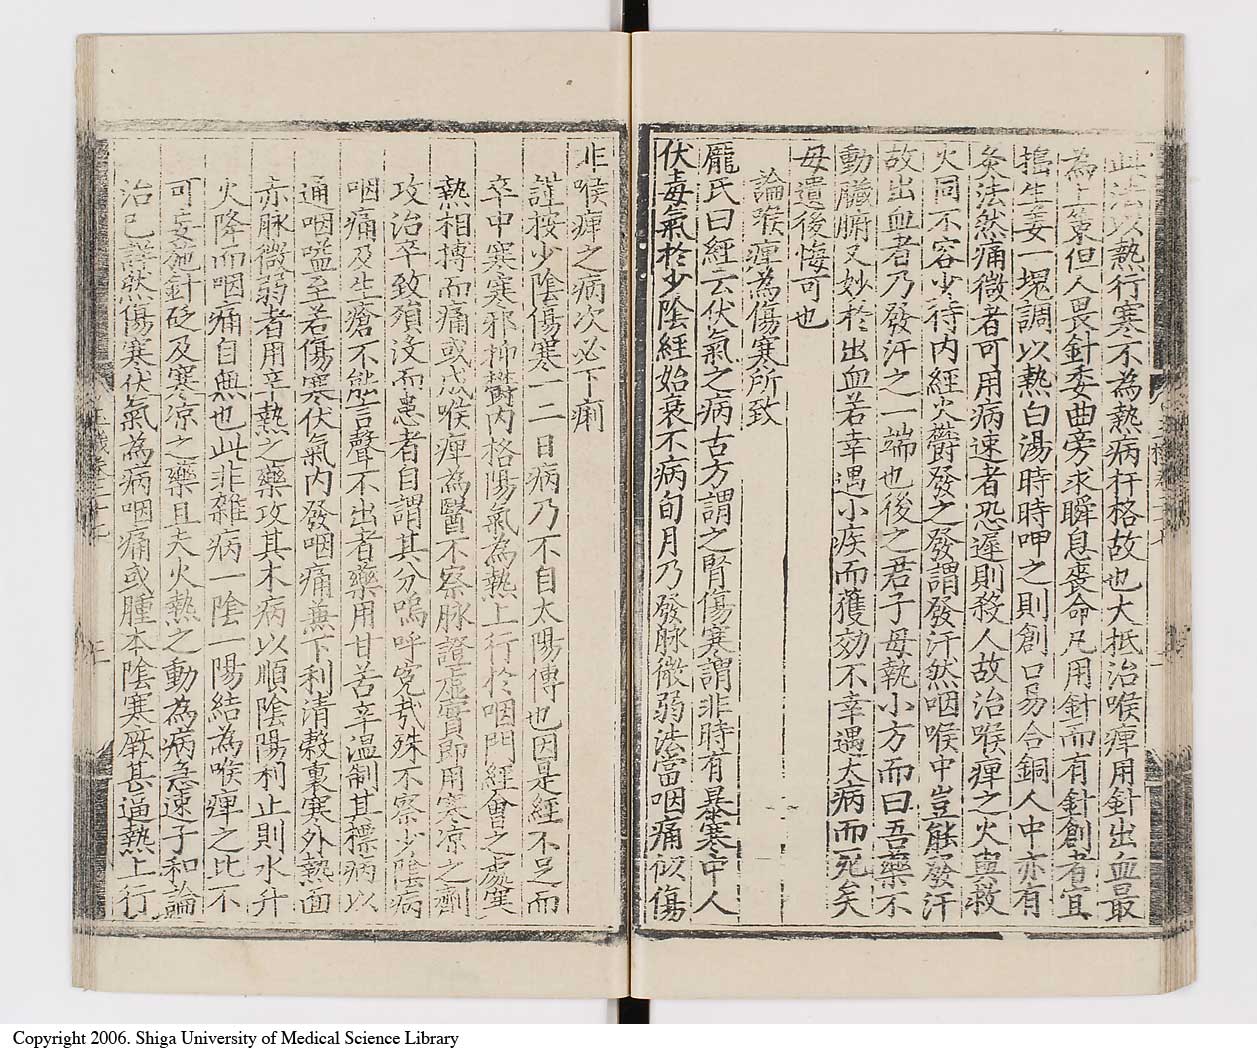 此法以熱行寒不為熱病扞格故也大抵治喉痺用針出血最
為上策但人畏針委曲旁求瞬息喪命凡用針而有針創者宜
搗生姜一塊調以熱白湯時時呷之則創口易合銅人中亦有
灸法然痛微者可用病速者恐遲則殺人故治喉痺之火與救
火同不容少待內經火欝發之發謂發汗然咽喉中豈能發汗
故出血者乃發汗之一端也後之君子毋執小方而曰吾藥不
動臟腑又妙於出血若幸遇小疾而獲効不幸遇大病而死矣
毋遺後悔可也
論喉痺為傷寒所致
龐氏曰經云伏氣之病古方謂之腎傷寒謂非時有暴寒中人
伏毒氣於少陰經始衰不病旬月乃發脉微弱法當咽痛似傷
非喉痺之病次必下痢
謹按少陰傷寒一二日病乃不自太陽傳也因是經不足而
卒中寒寒邪抑欝內格陽氣為熱上行於咽門經會之處寒
熱相搏而痛或成喉痺為醫不察脉證虛實即用寒凉之劑
攻治卒致殞沒而患者自謂其分嗚呼寃哉殊不察少陰病
咽痛及生瘡不能言聲不出者藥用甘苦辛溫制其標病以
通咽嗌至若傷寒伏氣內發咽痛兼下利清穀裏寒外熱面
赤脉微弱者用辛熱之藥攻其本病以順陰陽利止則水升
火降而咽痛自無也此非雜病一陰一陽結為喉痺之比不
可妄施針砭及寒凉之藥且夫火熱之動為病急速子和論
治已詳然傷寒伏氣為病咽痛或腫本陰寒厥甚逼熱上行
Copyright 2006. Shiga University of Medical Science Library